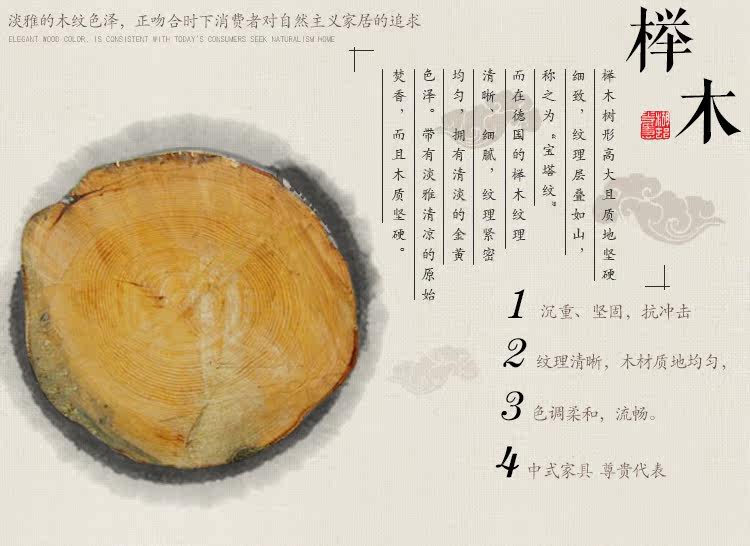 淡雅的木纹色泽，正吻合时下消费者对自然主义家居的追求
ELEGANT WOOD COLOR, IS CONSISTENT WITH TODAY'S CONSUMERS SEEK NATURALISM HOME
榉木
榉木树形高大且质地坚硬
细致，纹理层叠如山，
称之为“宝塔纹”
而在德国的榉木纹理
清晰，细腻，纹理紧密
均匀，拥有清淡的金黄
色泽。带有淡雅清凉的原始
焚香，而且木质坚硬。
1 沉重、坚固，抗冲击
2 纹理清晰，木材质地均匀，
3 色调柔和，流畅。
4 中式家具 尊贵代表